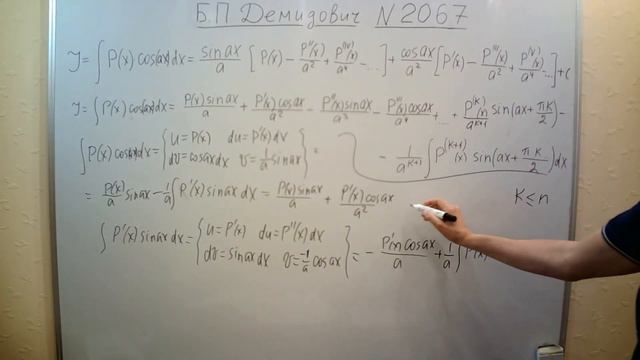 Б.П Демидович N 2067
J = ∫ P(x) cos(ax) dx = sin ax / a [P(x) − P''(x)/a² + P^(IV)(x)/a⁴ − ...] + cos ax / a² [P'(x) − P'''(x)/a² + P^(V)(x)/a⁴ − ...] + C
J = ∫ P(x) cos(ax) dx = P(x) sin ax / a + P'(x) cos ax / a² − P''(x) sin ax / a³ − P'''(x) cos ax / a⁴ + ... + P^(k)(x) / a^(k+1) sin(ax + πk/2) −
− 1/a^(k+1) ∫ P^(k+1)(x) sin(ax + πk/2) dx
∫ P(x) cos(ax) dx = { u = P(x) du = P'(x) dx
dv = cos ax dx v = 1/a sin ax } =
= P(x)/a sin ax − 1/a ∫ P'(x) sin ax dx = P(x) sin ax / a + P'(x) cos ax / a²
K ≤ n
∫ P'(x) sin ax dx = { u = P'(x) du = P''(x) dx
dv = sin ax dx v = −1/a cos ax } = − P'(x) cos ax / a + 1/a ∫